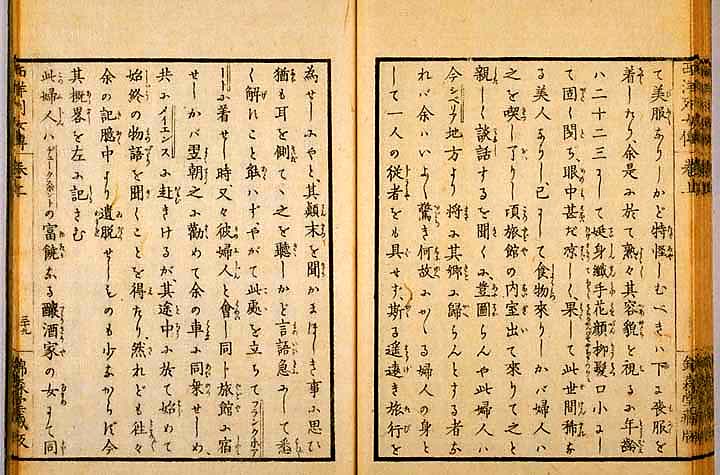 て美服ありしかど特怪しむべきハ下に喪服を
着したり、余是に於て熟々其容貌を視るに年齢
ハ二十二三にして娗身纖手花顔柳髪口小にし
て固く閉ち、眼中甚だ凉しく、果して此世間稀なる
る美人なり、已にして食物來りしかバ婦人ハ
之を喫し了りし頃旅館の内室出て來りて之と
親しく談話するを聞くに、豈圖らんや此婦人ハ
今シベリア地方より將に其郷に歸らんとする者な
れバ余ハいよ〱驚き何故にかゝる婦人の身と
して一人の従者をも具せず、斯る遥遠き旅行を
為せしにやと、其顛末を聞かまほしき事に思ひ
猶も耳を側てゝ之を聽しかど言語急にして悉
く解れこと能ハずやがて此處を立ちてフランクホア
ートに着せし時又々彼婦人と會し同ト旅館に宿
せしかバ翌朝之に勸めて余の車に同乗せしめ、
共にメイエンスに赴きけるが其途中に於て始めて
始終の物語を聞くことを得たり然れども往々
余の記臆中より遺脱せしものも少なからバ今
其概畧を左に記さむ
此婦人ハデュークスボントの富饒なる釀酒家の女にて同
西洋列女傳 巻上
三十九
錦森堂蔵版